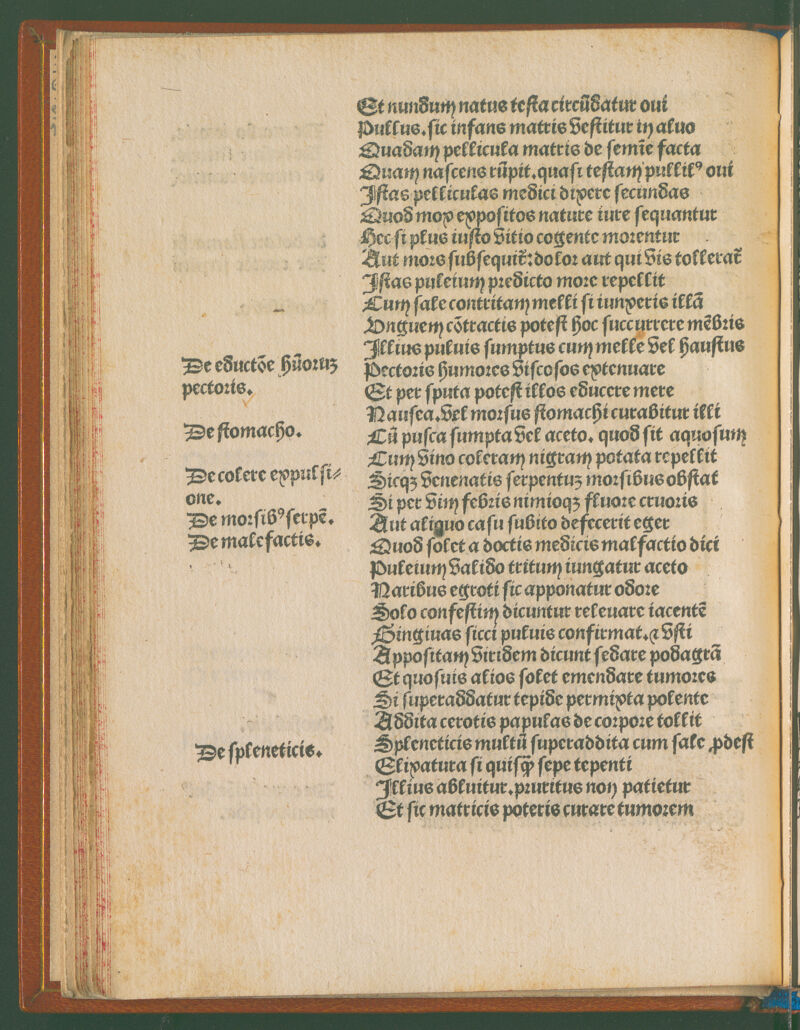 Et nundum natus testa circũdatur oui
Pullus. sic infans matris vestitur in aluo
Quadam pellicula matris de semĩe facta
Quam nascens rũpit. quasi testam pullilꝰ oui
Istas pelliculas medici dixere secundas
Quod mox expositos nature iure sequantur
Hec si plus iusto vitio cogente morentur
Aut mors subsequit̃: dolor aut qui vis tollerat̃
Istas puleium predicto more repellit
Cum sale contritam melli si iunxeris illã
Vnguem cõtractis potest hoc succurrere mẽbris
Illius puluis sumptus cum melle vel haustus
De eductõe hũorũ Pectoris humores viscosos extenuare
pectoris. Et per sputa potest illos educere mere
Nausea. vel morsus stomachi curabitur illi
De stomacho. Cũ pusca sumpta vel aceto. quod sit aquosum
Cum vino coleram nigram potata repellit
De colere expulsi⸗ Sicqꝫ venenatis serpentuꝫ morsibus obstat
one. Si per vim febris nimioqꝫ fluore cruoris
De morsibꝰ serpẽ. Aut aliquo casu subito defecerit eger
De malefactis. Quod solet a doctis medicis malfactio dici
Puleium valido tritum iungatur aceto
Naribus egroti sic apponatur odore
Solo confestim dicuntur releuare iacentẽ
Gingiuas sicci puluis confirmat. ⁊ vsti
Appositam viridem dicunt sedare podagrã
Et quosuis alios solet emendare tumores
Si superaddatur tepide permixta polente
Addita cerotis papulas de corpore tollit
De spleneticis. Spleneticis multũ superaddita cum sale ꝓdest
Elixatura si quisqꝫ sepe tepenti
Illius abluitur. pruritus non patietur
Et sic matricis poteris curare tumorem